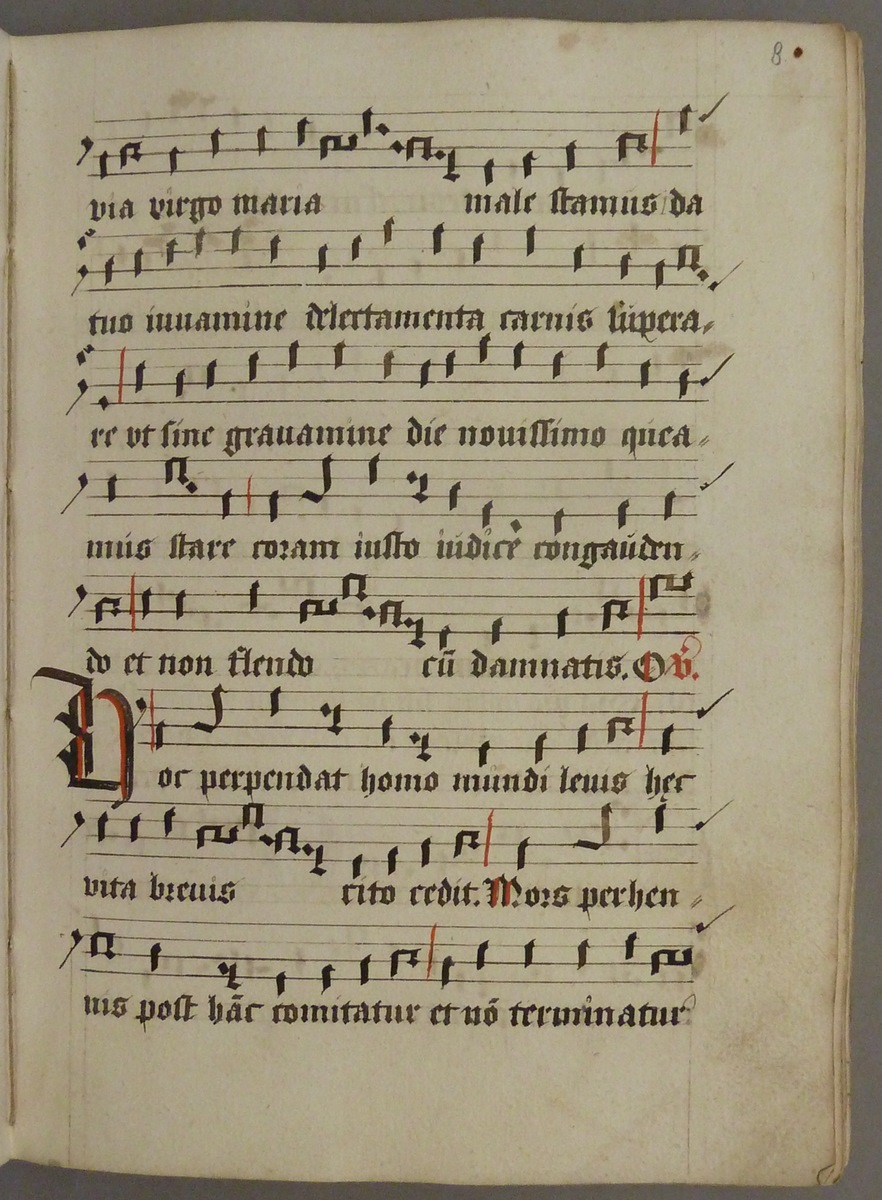 8
via virgo maria male stamus da
tuo iuuamine delectamenta carnis supera-
re vt sine grauamine die nouissimo quea-
mus stare coram iusto iudice congauden-
do et non flendo cū damnatis. O v̄.
Hoc perpendat homo mundi leuis hęc
vita breuis cito cedit. Mors perhen-
nis post hāc comitatur et nō terminatur